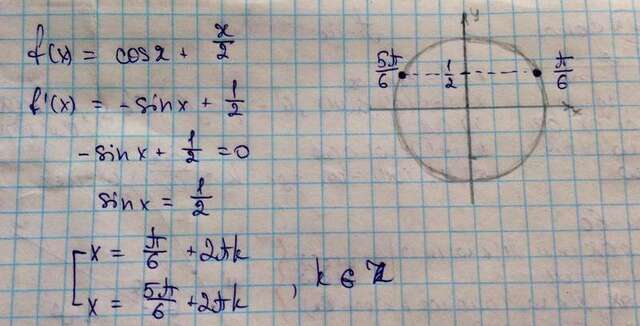 f(x) = cosx + x/2
f'(x) = -sinx + 1/2
-sinx + 1/2 = 0
sinx = 1/2
x = π/6 + 2πk
x = 5π/6 + 2πk , k ∈ Z
y
5π/6 1/2 π/6
x